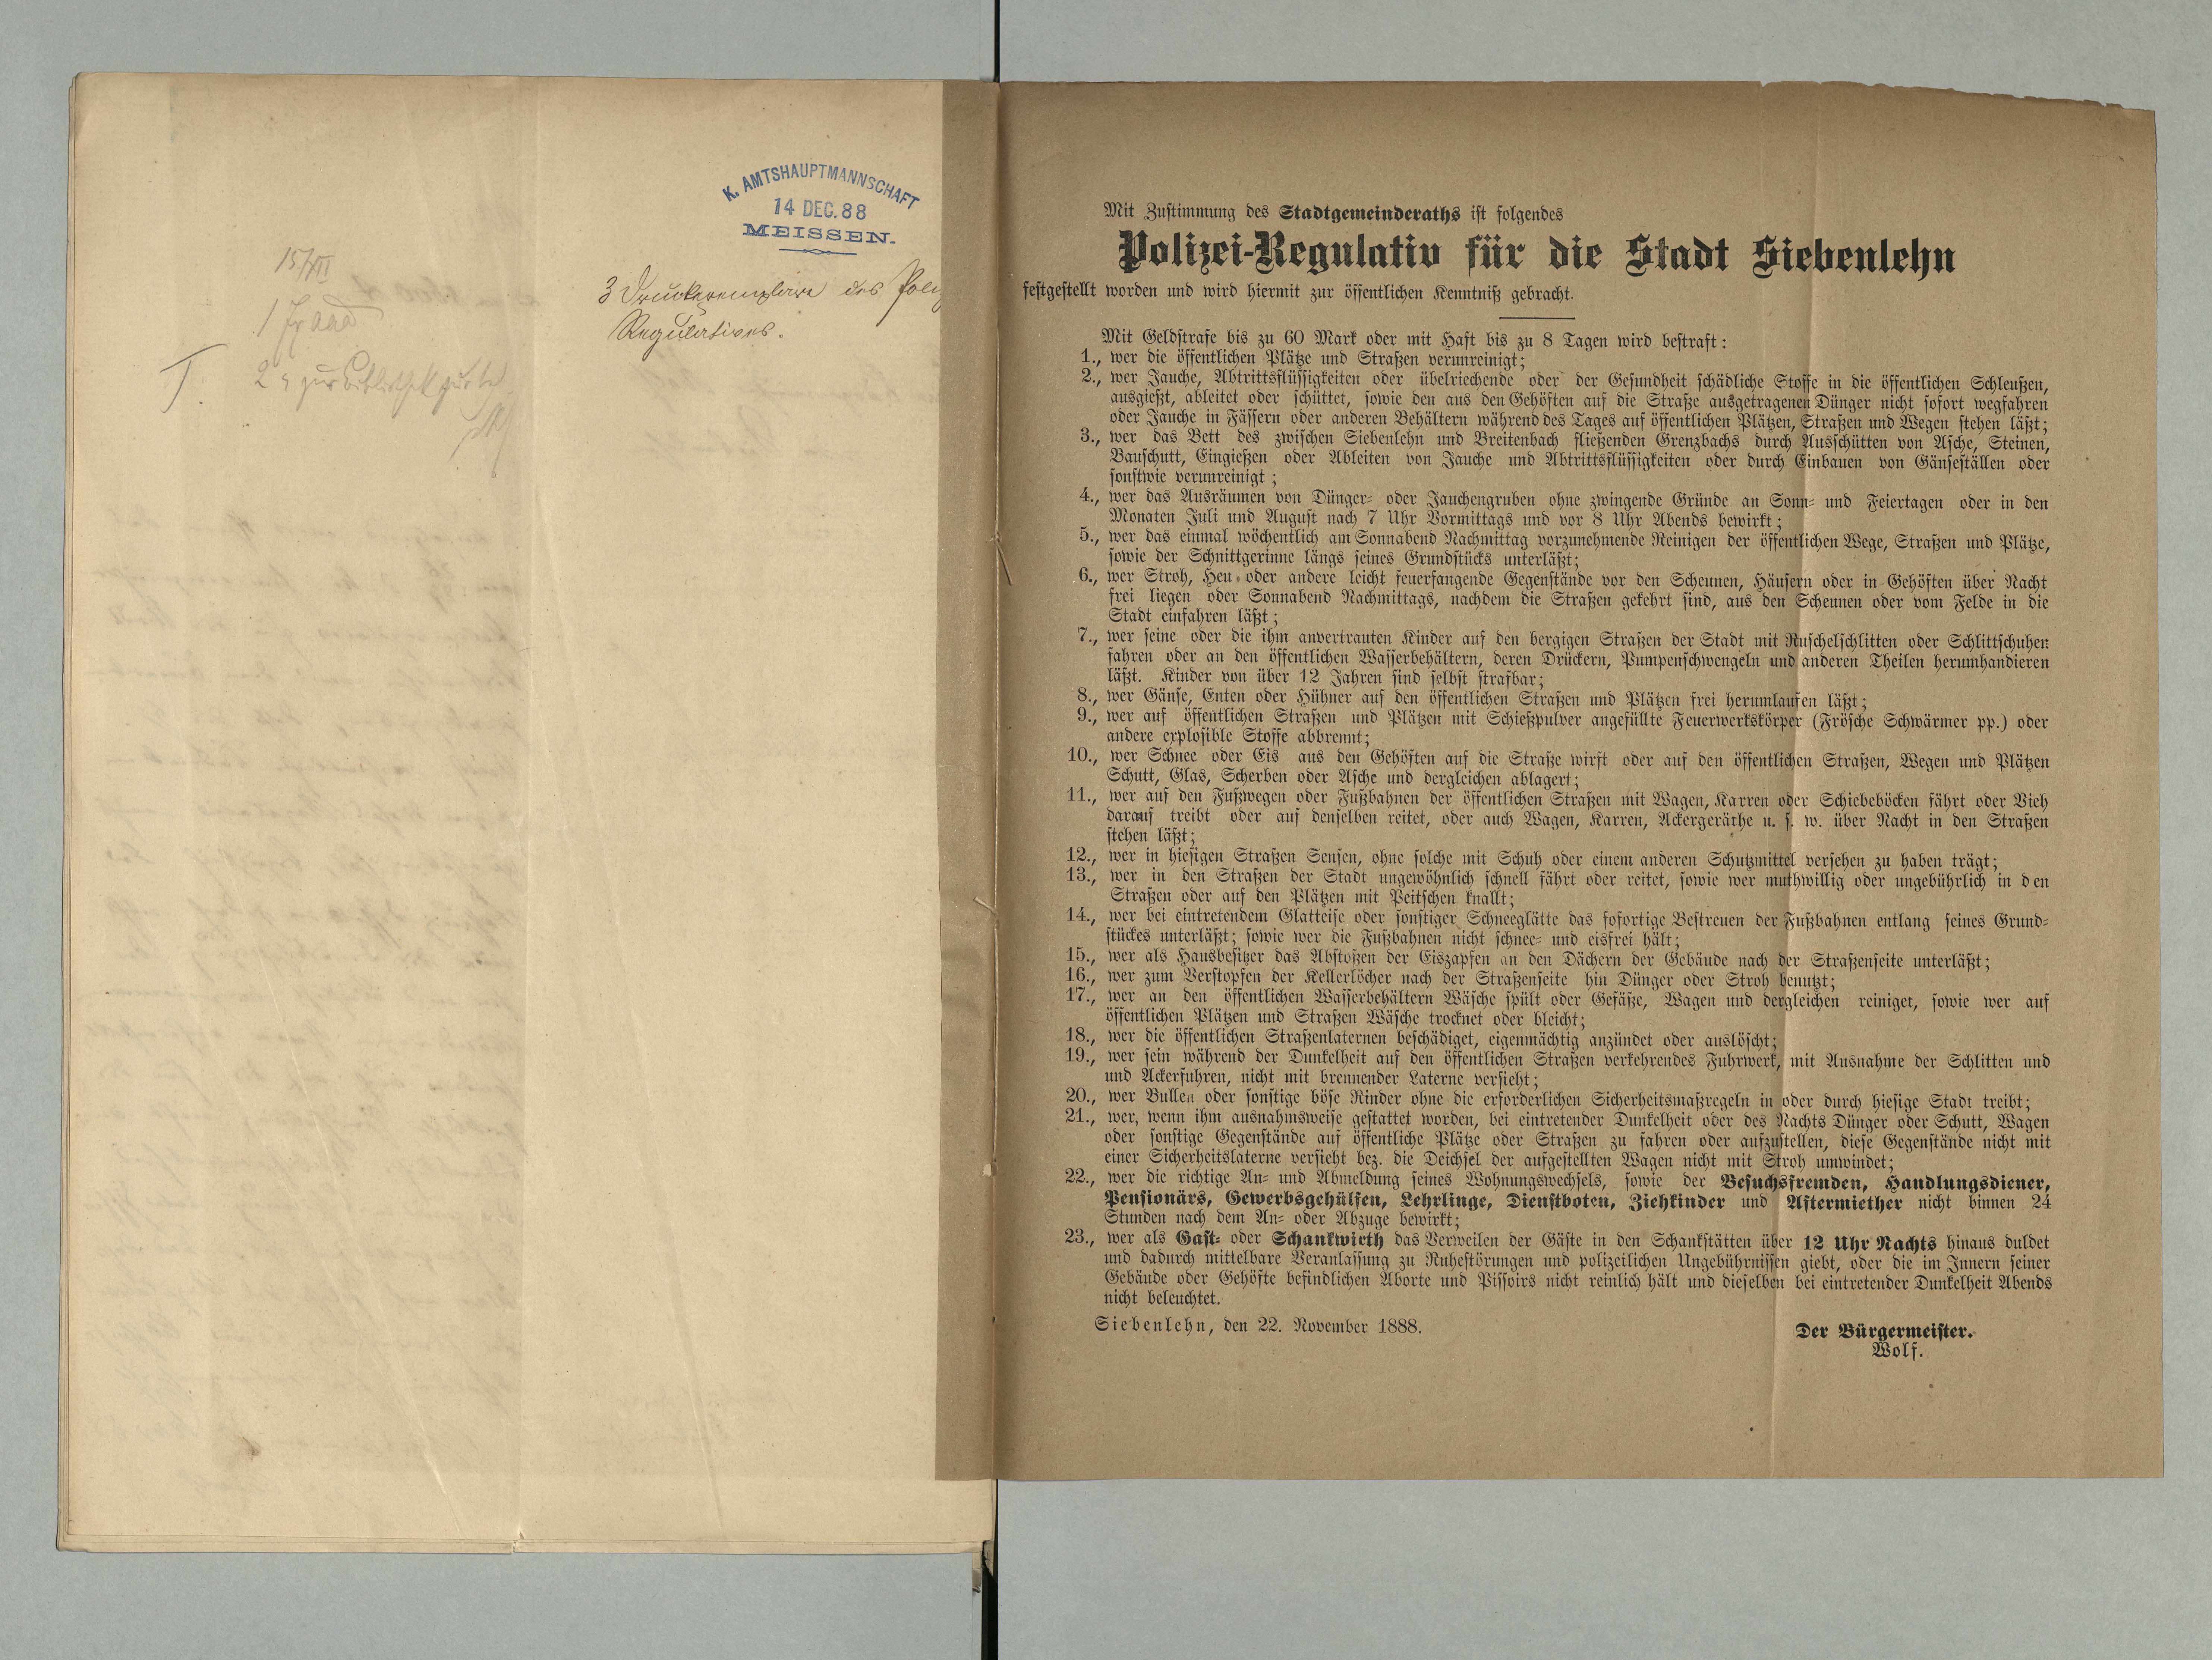 K. AMTSHAUPTMANNSCHAFT
14 DEC. 88
MEISSEN.
3 Druckexemplare des Poliz
Regulatives.
15/XII
Mit Zustimmung des Stadtgemeinderaths ist folgendes
Polizei-Regulativ für die Stadt Siebenlehn
festgestellt worden und wird hiermit zur öffentlichen Kenntniß gebracht.
Mit Geldstrafe bis zu 60 Mark oder mit Haft bis zu 8 Tagen wird bestraft:
1., wer die öffentlichen Plätze und Straßen verunreinigt;
2., wer Jauche, Abtrittsflüssigkeiten oder übelriechende oder der Gesundheit schädliche Stoffe in die öffentlichen Schleußen,
ausgießt, ableitet oder schüttet, sowie den aus den Gehöften auf die Straße ausgetragenen Dünger nicht sofort wegfahren
oder Jauche in Fässern oder anderen Behältern während des Tages auf öffentlichen Plätzen, Straßen und Wegen stehen läßt;
3., wer das Bett des zwischen Siebenlehn und Breitenbach fließenden Grenzbachs durch Ausschütten von Asche, Steinen,
Bauschutt, Eingießen oder Ableiten von Jauche und Abtrittsflüssigkeiten oder durch Einbauen von Gänseställen oder
sonstwie verunreinigt;
4., wer das Ausräumen von Dünger- oder Jauchengruben ohne zwingende Gründe an Sonn- und Feiertagen oder in den
Monaten Juli und August nach 7 Uhr Vormittags und vor 8 Uhr Abends bewirkt;
5., wer das einmal wöchentlich am Sonnabend Nachmittag vorzunehmende Reinigen der öffentlichen Wege, Straßen und Plätze,
sowie der Schnittgerinne längs seines Grundstücks unterläßt;
6., wer Stroh, Heu- oder andere leicht feuerfangende Gegenstände vor den Scheunen, Häusern oder in Gehöften über Nacht
frei liegen oder Sonnabend Nachmittags, nachdem die Straßen gekehrt sind, aus den Scheunen oder vom Felde in die
Stadt einfahren läßt;
7., wer seine oder die ihm anvertrauten Kinder auf den bergigen Straßen der Stadt mit Ruschelschlitten oder Schlittschuhen
fahren oder an den öffentlichen Wasserbehältern, deren Drückern, Pumpenschwengeln und anderen Theilen herumhandieren
läßt. Kinder von über 12 Jahren sind selbst strafbar;
8., wer Gänse, Enten oder Hühner auf den öffentlichen Straßen und Plätzen frei herumlaufen läßt;
9., wer auf öffentlichen Straßen und Plätzen mit Schießpulver angefüllte Feuerwerkskörper (Frösche Schwärmer pp.) oder
andere explosible Stoffe abbrennt;
10., wer Schnee oder Eis aus den Gehöften auf die Straße wirft oder auf den öffentlichen Straßen, Wegen und Plätzen
Schutt, Glas, Scherben oder Asche und dergleichen ablagert;
11., wer auf den Fußwegen oder Fußbahnen der öffentlichen Straßen mit Wagen, Karren oder Schiebeböcken fährt oder Vieh
darauf treibt oder auf denselben reitet, oder auch Wagen, Karren, Ackergeräthe u. s. w. über Nacht in den Straßen
stehen läßt;
12., wer in hiesigen Straßen Sensen, ohne solche mit Schuh oder einem anderen Schutzmittel versehen zu haben trägt;
13., wer in den Straßen der Stadt ungewöhnlich schnell fährt oder reitet, sowie wer muthwillig oder ungebührlich in den
Straßen oder auf den Plätzen mit Peitschen knallt;
14., wer bei eintretendem Glatteise oder sonstiger Schneeglätte das sofortige Bestreuen der Fußbahnen entlang seines Grund-
stückes unterläßt; sowie wer die Fußbahnen nicht schnee- und eisfrei hält;
15., wer als Hausbesitzer das Abstoßen der Eiszapfen an den Dächern der Gebäude nach der Straßenseite unterläßt;
16., wer zum Verstopfen der Kellerlöcher nach der Straßenseite hin Dünger oder Stroh benutzt;
17., wer an den öffentlichen Wasserbehältern Wäsche spült oder Gefäße, Wagen und dergleichen reiniget, sowie wer auf
öffentlichen Plätzen und Straßen Wäsche trocknet oder bleicht;
18., wer die öffentlichen Straßenlaternen beschädiget, eigenmächtig anzündet oder auslöscht;
19., wer sein während der Dunkelheit auf den öffentlichen Straßen verkehrendes Fuhrwerk, mit Ausnahme der Schlitten und
und Ackerfuhren, nicht mit brennender Laterne versieht;
20., wer Bullen oder sonstige böse Rinder ohne die erforderlichen Sicherheitsmaßregeln in oder durch hiesige Stadt treibt;
21., wer, wenn ihm ausnahmsweise gestattet worden, bei eintretender Dunkelheit oder des Nachts Dünger oder Schutt, Wagen
oder sonstige Gegenstände auf öffentliche Plätze oder Straßen zu fahren oder aufzustellen, diese Gegenstände nicht mit
einer Sicherheitslaterne versieht bez. die Deichsel der aufgestellten Wagen nicht mit Stroh umwindet;
22., wer die richtige An- und Abmeldung seines Wohnungswechsels, sowie der Besuchsfremden, Handlungsdiener,
Pensionärs, Gewerbsgehülfen, Lehrlinge, Dienstboten, Ziehkinder und Aftermiether nicht binnen 24
Stunden nach dem An- oder Abzuge bewirkt;
23., wer als Gast- oder Schankwirth das Verweilen der Gäste in den Schankstätten über 12 Uhr Nachts hinaus duldet
und dadurch mittelbare Veranlassung zu Ruhestörungen und polizeilichen Ungebührnissen giebt, oder die im Innern seiner
Gebäude oder Gehöfte befindlichen Aborte und Pissoirs nicht reinlich hält und dieselben bei eintretender Dunkelheit Abends
nicht beleuchtet.
Siebenlehn, den 22. November 1888.
Der Bürgermeister.
Wolf.